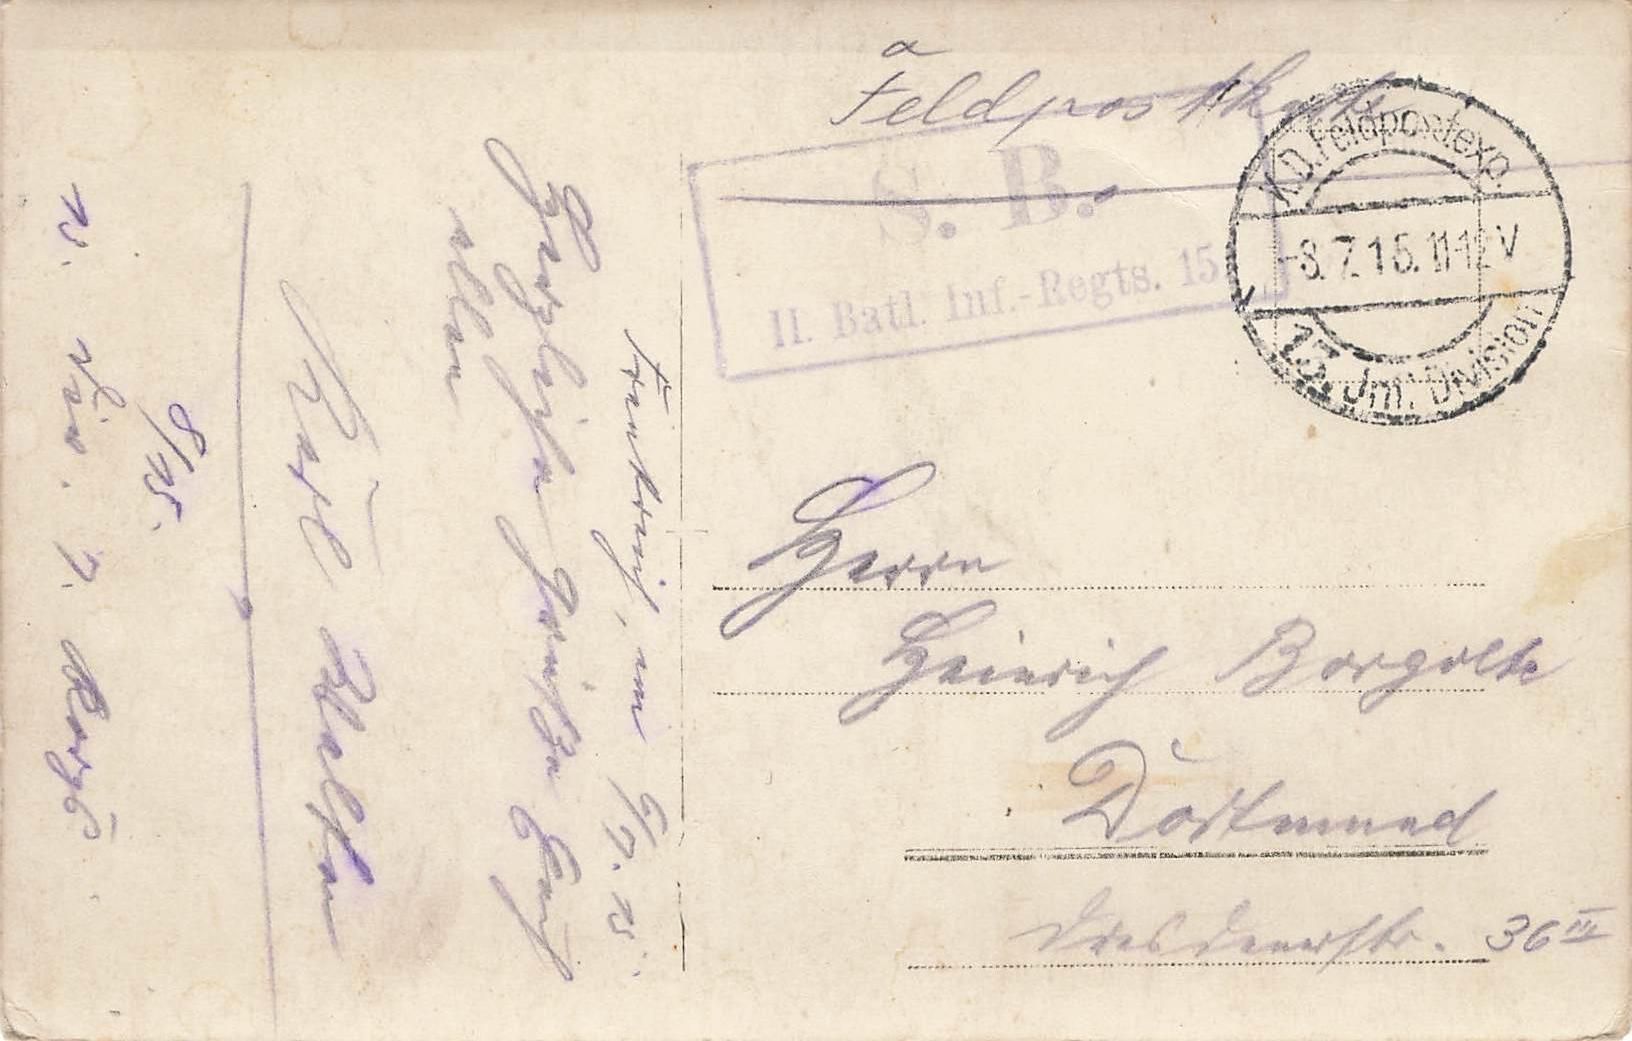 a
Feldpostkarte
S. B.
II. Batl. Inf.-Regts. 15
K.D. Feldpostexp.
-8.7.15.11-12V
13. Inf. Division
Herrn
Heinrich Borgolte
Dortmund
Dresdenerstr. 36 III
Frankreich, am 6/7. 15.
Herzlichen Grüße Euch
allen
Karl Walter
8/15.